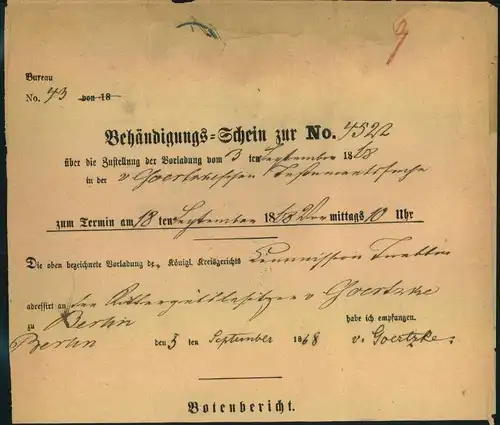 9
Bureau
No. 43 von 18
Behändigungs=Schein zur No. 4522
über die Zustellung der Vorladung vom 3 ten September 1868
in der v Goertzkeschen Testamentssache
zum Termin am 18 ten September 1868 Vormittags 10 Uhr
Die oben bezeichnete Vorladung der Königl. Kreisgerichts Commission Trebbin
adressirt an den Rittergutsbesitzer v Goertzke
zu Berlin habe ich empfangen.
Berlin den 5 ten September 1868 v. Goertzke.
Botenbericht.